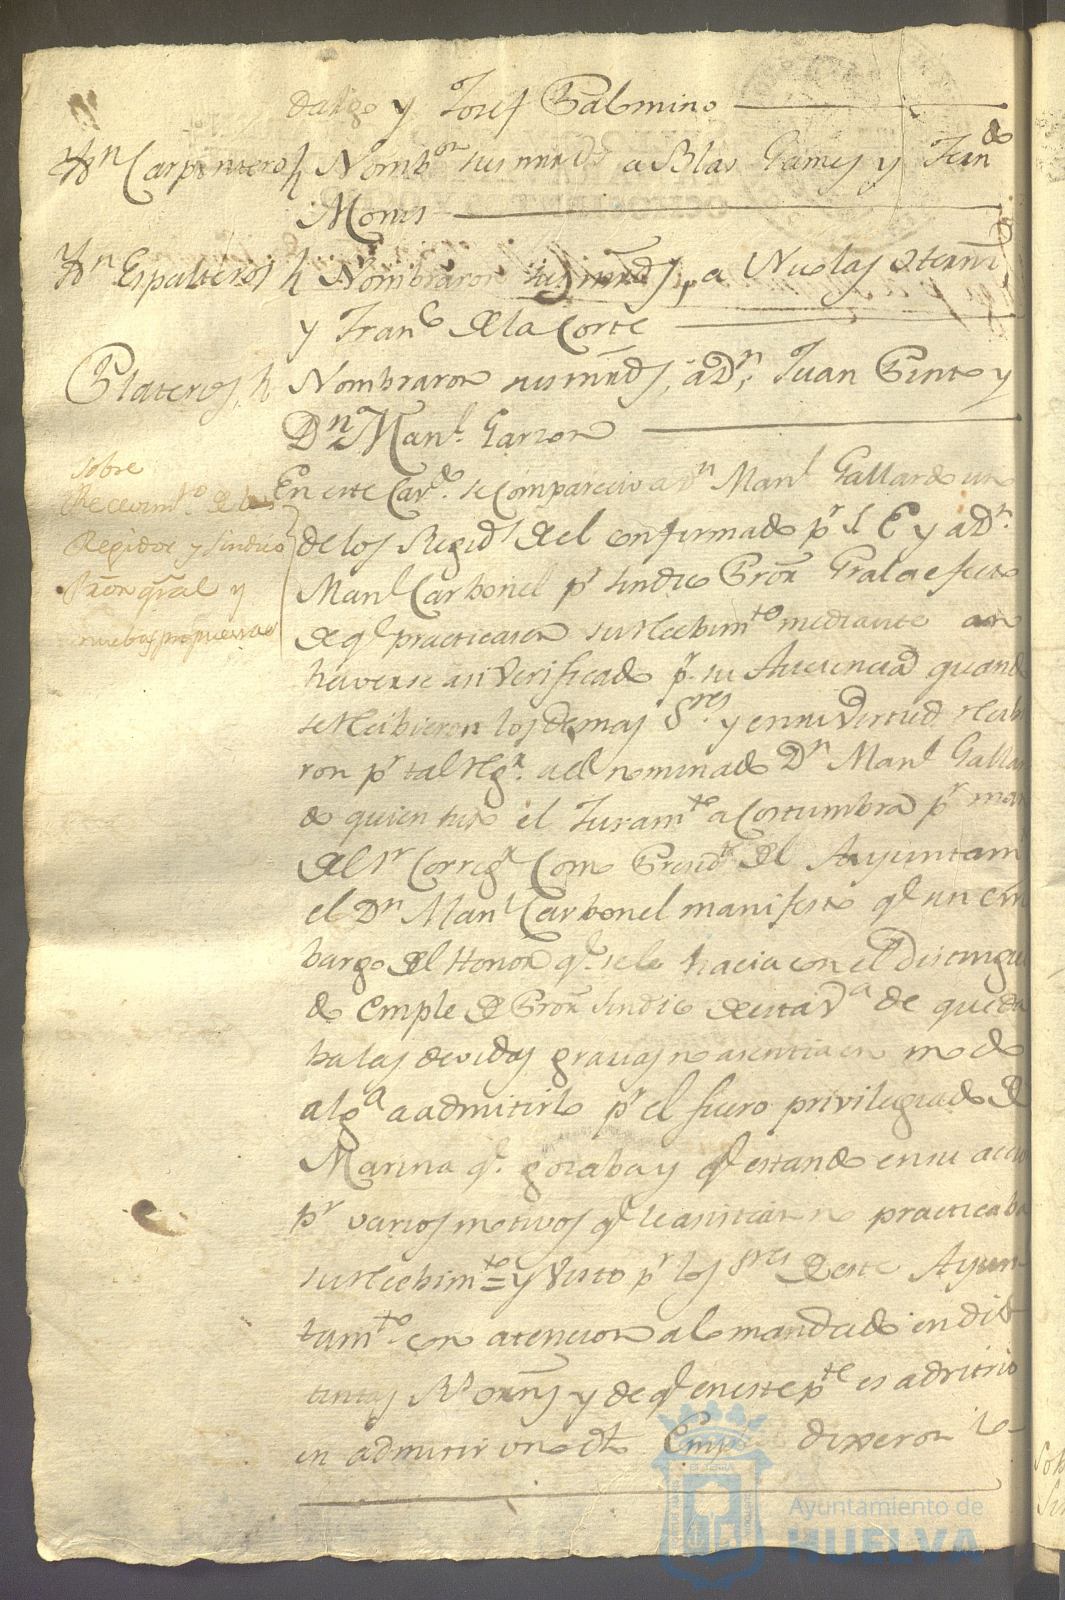 dalgo y Josef Palmino
Yn Carpinteros Nombon sus mrds a Blas Gamez y Ferndo
Mones
Yn Espalteros Nombraron sus mrds, a Nicolas
y Franco de la Corte
Plateros Nombraron sus mrds, a Dn Juan Pinto y
Dn Manl Garzon
sobre
Recevimto de los
Regidor y Sindico
Prōr gral y
nuebas propuestas
En este Cavdo se comparecio a Dn Manl Gallardo uno
de los Regids de el confirmado pr S E y a Dn
Manl Carbonel pr Sindico Prōr Gral a efecto
de qe practicasen su recebimto mediante a no
haverse asi verificado pr su Ausencia quando
se recibieron los demas Sres y en su virtud recibi
ron pr tal regr a el nominado Dn Manl Gallar
do quien hizo el Juramto a Costumbrado pr man
del Sr Corregr Como Presidte del Ayuntam
el Dn Manl Carbonel manifesto qe sin em
bargo del Honor qe se le hacia con el distingui
do Empleo de Prōr Sindico de esta Va de que da
ba las devidas gracias no asentia en modo
alga a admitirlo pr el fuero privilegiado de
Marina qe gozaba y qe estando en su accio
pr varios motivos qe le asistian no practicaba
su recebimto = y Visto pr los Sres de este Ayun-
tamto con atencion a lo mandado en dis
tintas Rs Orns y de qe en este pte es advitrio
en admitir o no dho Empo dixeron
Ayuntamiento de
HUELVA